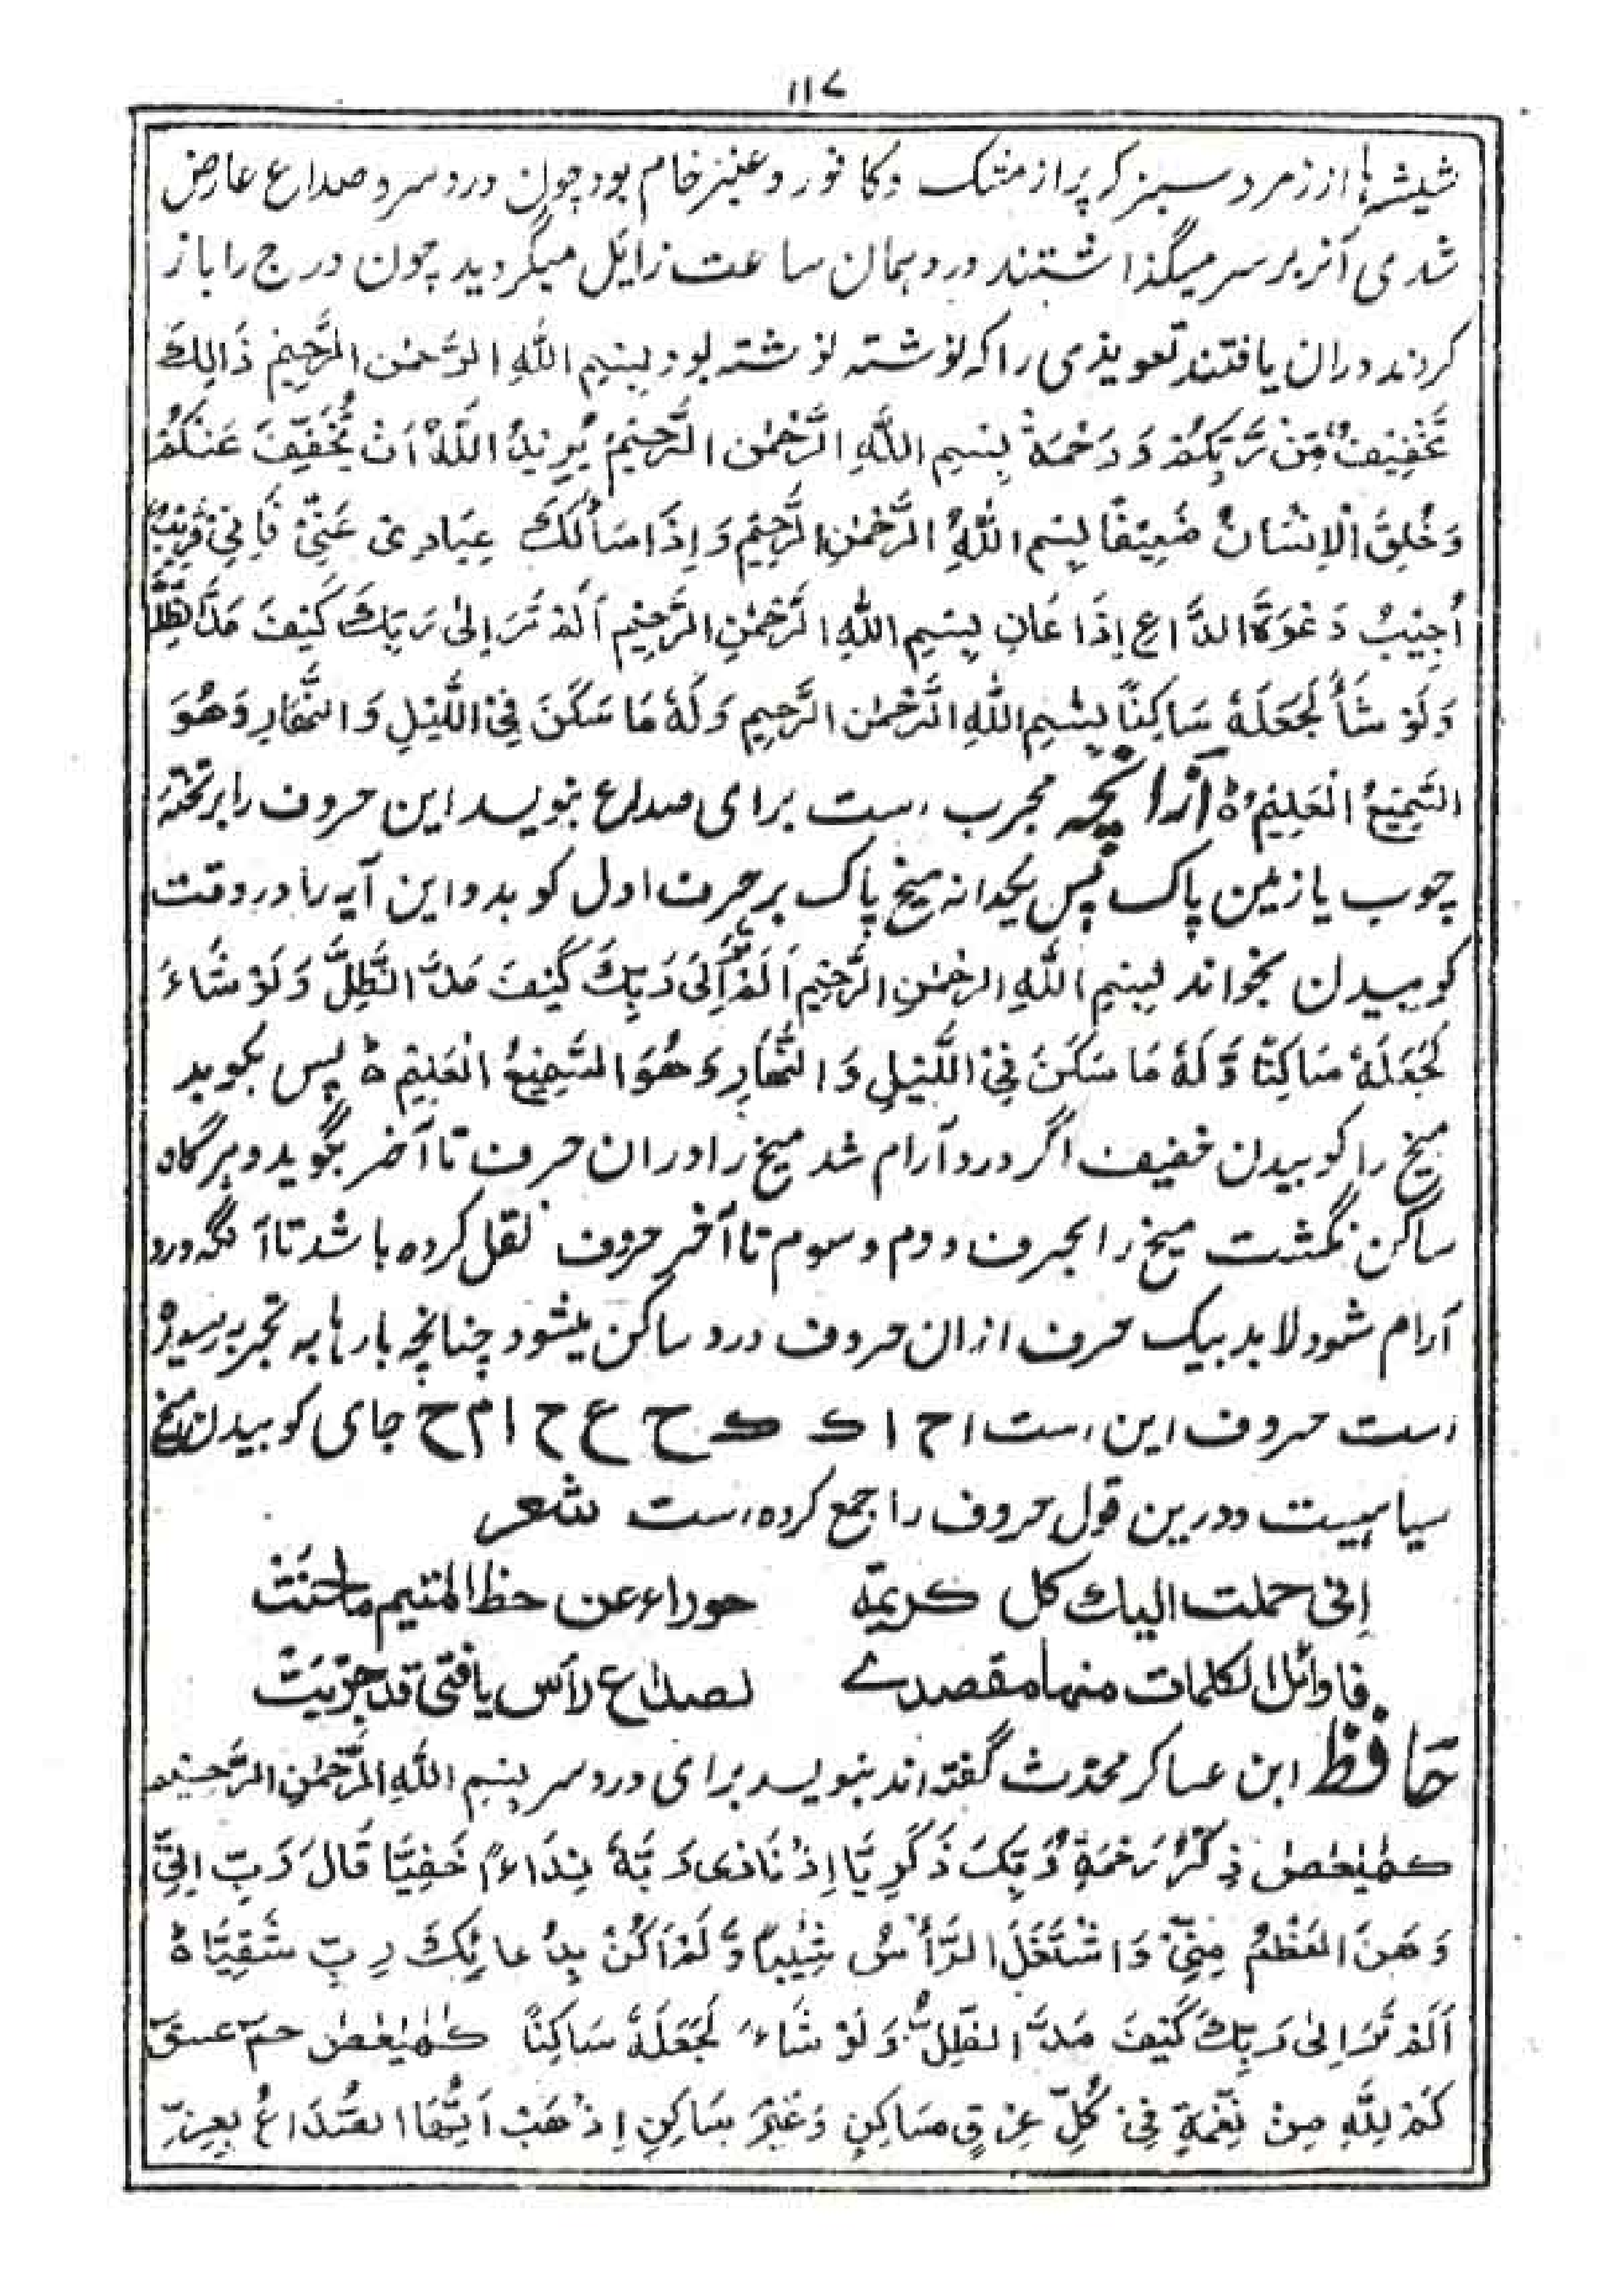 ۱۱۷
شیشہ ہا از زمرد سبز کہ پر از مشک و کافور و عنبر خام بود چون درد سر و صداع عارض
شدی آنز بر سر میگذاشتند درد ہمان ساعت زایل میگردید چون درج را باز
کردند دران یافتند تعویذی را کہ نوشتہ نوشتہ بود بِسْمِ اللّٰهِ الرَّحْمٰنِ الرَّحِیْمِ ذَالِكَ
تَخْفِیْفٌ مِّنْ رَّبِّکُمْ وَ رَحْمَةٌ بِسْمِ اللّٰهِ الرَّحْمٰنِ الرَّحِیْمِ یُرِیْدُ اللّٰهُ اَنْ یُّخَفِّفَ عَنْکُمْ
وَخُلِقَ الْاِنْسَانُ ضَعِیْفًا بِسْمِ اللّٰهِ الرَّحْمٰنِ الرَّحِیْمِ وَ اِذَا سَأَلَكَ عِبَادِیْ عَنِّیْ فَاِنِّیْ قَرِیْبٌ
اُجِیْبُ دَعْوَةَ الدَّاعِ اِذَا عَانِ بِسْمِ اللّٰهِ الرَّحْمٰنِ الرَّحِیْمِ اَلَمْ تَرَ اِلٰی رَبِّكَ کَیْفَ مَدَّ الظِّلَّ
وَلَوْ شَأَ لَجَعَلَهٗ سَاکِنًا بِسْمِ اللّٰهِ الرَّحْمٰنِ الرَّحِیْمِ وَلَهٗ مَا سَکَنَ فِی اللَّیْلِ وَ النَّهَارِ وَهُوَ
السَّمِیْعُ الْعَلِیْمُ ہ ازانچہ مجرب است برای صداع بنویسد این حروف را بر تختہ
چوب یا زمین پاک پس یکدانہ میخ پاک بر حرف اول کوبد و این آیہ را در وقت
کوبیدن بخواند بِسْمِ اللّٰهِ الرحْمٰنِ الرَّحِیْمِ اَلَمْ تَرَ اِلَی رَبِّكَ کَیْفَ مَدَّ الظِّلَّ وَلَوْ شَاءَ
لَجَعَلَهٗ سَاکِنًا وَّلَهٗ مَا سَکَنَ فِی اللَّیْلِ وَ النَّهَارِ وَهُوَ السَّمِیْعُ الْعَلِیْمِ ہ پس بکوبد
میخ را کوبیدن خفیف اگر درد آرام شد میخ را دران حرف تا آخر بگوید و ہرگاہ
ساکن نگشت میخ را بحرف دوم و سوم تا آخر حروف نقل کردہ باشد تا آنگہ درد
آرام شود لا بد بیک حرف ازان حروف درد ساکن میشود چنانچہ بارہا بہ تجربہ رسیدہ
است حروف این است ا ح ا ک ک ح ع ح ا م ح جای کوبیدن میخ
سیاہیست ودرین قول حروف را جمع کردہ است شعر
اِنی حملت الیك کل کریمة حوراء عن حظ المتیم ماحنت
فاوائل الکلمات منها مقصدے لصداع رأس یا فتی قد جربت
حافظ ابن عساکر محدث گفتہ اند بنویسد برای درد سر بِسْمِ اللّٰهِ الرَّحْمٰنِ الرَّحِیْمِ
کٓهٰیٰعٓصٓ ذِکْرُ رَحْمَةِ رَبِّكَ ذَکَرِیَّا اِذْ نَادٰی رَبَّهٗ نِدَاءً خَفِیًّا قَالَ رَبِّ اِنِّیْ
وَهَنَ الْعَظْمُ مِنِّیْ وَ اشْتَعَلَ الرَّأْسُ شَیْبًا وَّ لَمْ اَکُنْ بِدُعائِكَ رِبِّ شَقِیًّا ہ
اَلَمْ تَرَ اِلٰی رَبِّكَ کَیْفَ مَدَّ الظِّلَّ وَلَوْ شَاءَ لَجَعَلَهٗ سَاکِنًا کٓهٰیٰعٓصٓ حٰمٓ عٓسٓقٓ
کَمْ لِلّٰهِ مِنْ نِعْمَةٍ فِیْ کُلِّ عِرْقٍ سَاکِنٍ وَغَیْرِ سَاکِنِ اِذْهَبْ اَیُّهَا الصُّدَاعُ بِعِزِّ